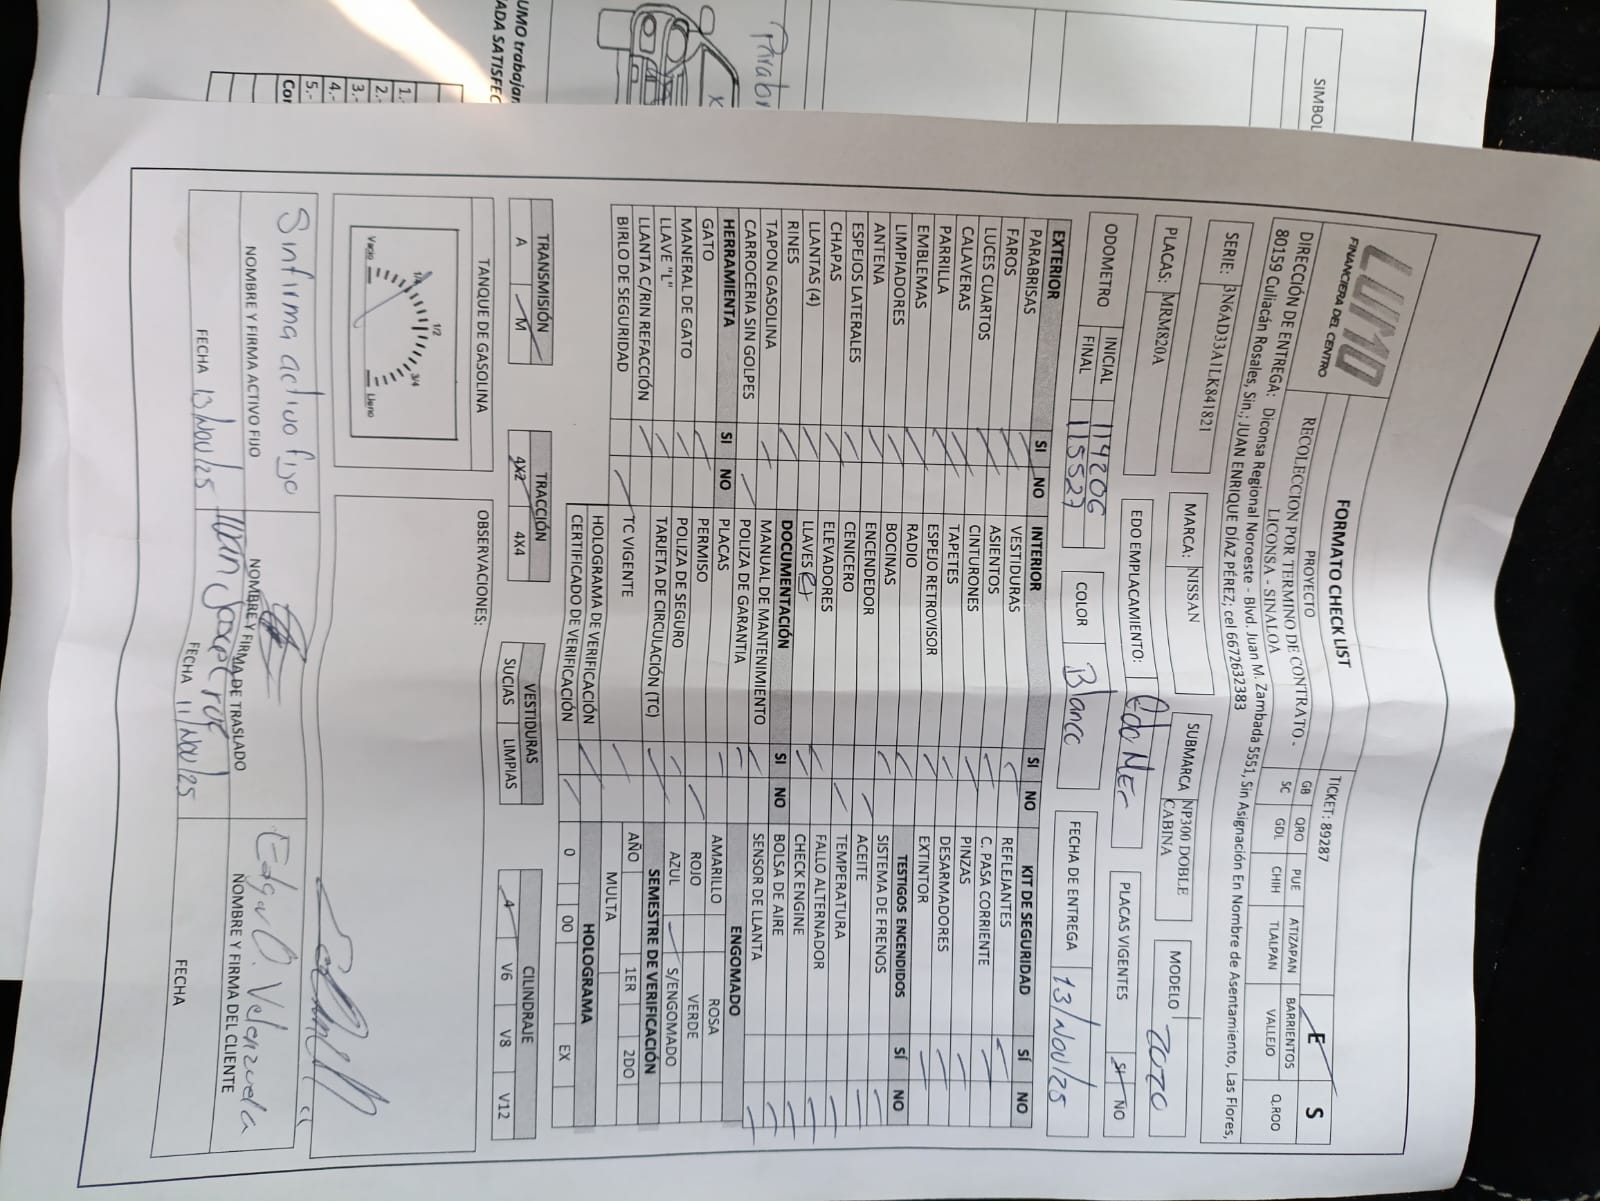 LUMO
FINANCIERA DEL CENTRO
FORMATO CHECK LIST
TICKET: 89287
E S
PROYECTO
RECOLECCION POR TERMINO DE CONTRATO -
LICONSA - SINALOA
GB QRO PUE ATIZAPAN BARRIENTOS Q.ROO
SC GDL CHIH TLALPAN VALLEJO
DIRECCIÓN DE ENTREGA: Diconsa Regional Noroeste - Blvd. Juan M. Zambada 5551, Sin Asignación En Nombre de Asentamiento, Las Flores,
80159 Culiacán Rosales, Sin.; JUAN ENRIQUE DÍAZ PÉREZ; cel 6672632383
SERIE: 3N6AD33A1LK841821
MARCA: NISSAN
SUBMARCA NP300 DOBLE
CABINA
MODELO 2020
PLACAS: MRM820A
EDO EMPLACAMIENTO: Edo Mex
PLACAS VIGENTES SI NO
ODOMETRO INICIAL 114206
FINAL 115527
COLOR Blanco
FECHA DE ENTREGA 13/Nov/25
EXTERIOR SI NO
PARABRISAS
FAROS
LUCES CUARTOS
CALAVERAS
PARRILLA
EMBLEMAS
LIMPIADORES
ANTENA
ESPEJOS LATERALES
CHAPAS
LLANTAS (4)
RINES
TAPON GASOLINA
CARROCERIA SIN GOLPES
HERRAMIENTA SI NO
GATO
MANERAL DE GATO
LLAVE "L"
LLANTA C/RIN REFACCIÓN
BIRLO DE SEGURIDAD
INTERIOR SI NO
VESTIDURAS
ASIENTOS
CINTURONES
TAPETES
ESPEJO RETROVISOR
RADIO
BOCINAS
ENCENDEDOR
CENICERO
ELEVADORES
LLAVES
DOCUMENTACIÓN SI NO
MANUAL DE MANTENIMIENTO
POLIZA DE GARANTIA
PLACAS
PERMISO
POLIZA DE SEGURO
TARJETA DE CIRCULACIÓN (TC)
TC VIGENTE
HOLOGRAMA DE VERIFICACIÓN
CERTIFICADO DE VERIFICACIÓN
KIT DE SEGURIDAD SÍ NO
REFLEJANTES
C. PASA CORRIENTE
PINZAS
DESARMADORES
EXTINTOR
TESTIGOS ENCENDIDOS SÍ NO
SISTEMA DE FRENOS
ACEITE
TEMPERATURA
FALLO ALTERNADOR
CHECK ENGINE
BOLSA DE AIRE
SENSOR DE LLANTA
ENGOMADO
AMARILLO ROSA
ROJO VERDE
AZUL S/ENGOMADO
SEMESTRE DE VERIFICACIÓN
AÑO 1ER 2DO
MULTA
HOLOGRAMA
0 00 EX
TRANSMISIÓN
A M
TRACCIÓN
4X2 4X4
VESTIDURAS
SUCIAS LIMPIAS
CILINDRAJE
4 V6 V8 V12
TANQUE DE GASOLINA
Vacio 1/4 1/2 3/4 Lleno
OBSERVACIONES:
Sin firma activo fijo
NOMBRE Y FIRMA ACTIVO FIJO
FECHA 13/Nov/25
NOMBRE Y FIRMA DE TRASLADO
FECHA 11/Nov/25
Edgar O. Velenzuela
NOMBRE Y FIRMA DEL CLIENTE
FECHA
SIMBOL
Parabr
X
UMO trabajan
ADA SATISFEC
1.-
2.-
3.-
4.-
5.-
Cor